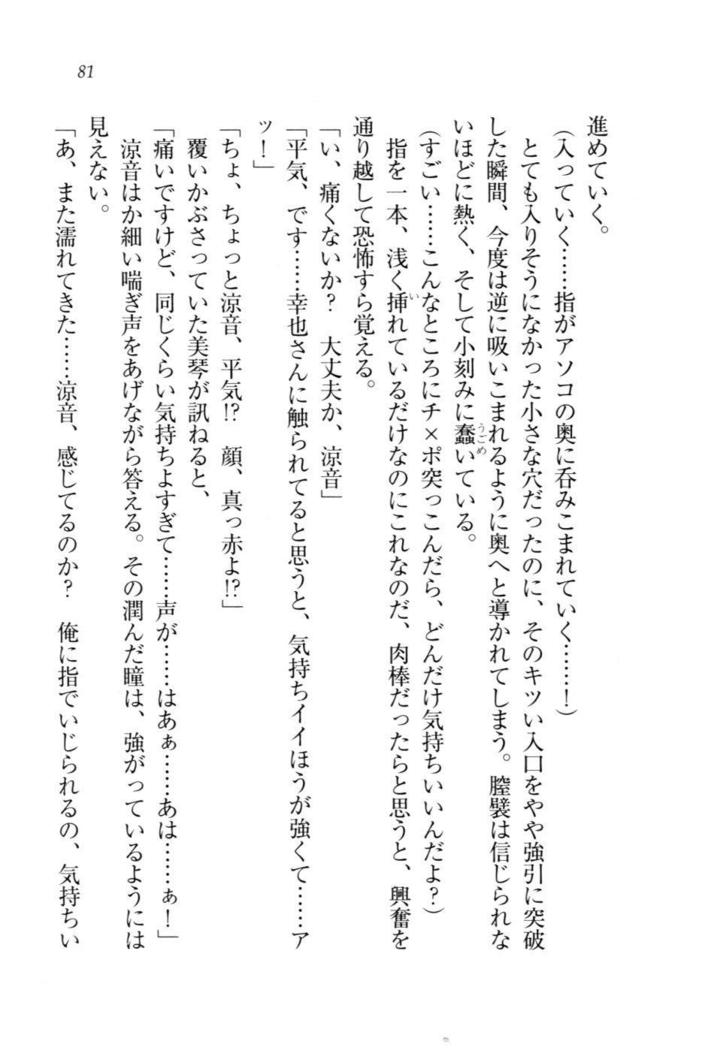 81
進めていく。
（入っていく……指がアソコの奥に呑みこまれていく……！）
とても入りそうになかった小さな穴だったのに、そのキツい入口をやや強引に突破
した瞬間、今度は逆に吸いこまれるように奥へと導かれてしまう。膣襞は信じられな
いほどに熱く、そして小刻みに蠢いている。
うごめ
（すごい……こんなところにチ×ポ突っこんだら、どんだけ気持ちいいんだよ？）
指を一本、浅く挿れているだけなのにこれなのだ、肉棒だったらと思うと、興奮を
い
通り越して恐怖すら覚える。
「い、痛くないか？　大丈夫か、涼音」
「平気、です……幸也さんに触られてると思うと、気持ちイイほうが強くて……ア
ッ！」
「ちょ、ちょっと涼音、平気!?　顔、真っ赤よ!?」
覆いかぶさっていた美琴が訊ねると、
「痛いですけど、同じくらい気持ちよすぎて……声が……はあぁ……あは……ぁ！」
涼音はか細い喘ぎ声をあげながら答える。その潤んだ瞳は、強がっているようには
見えない。
「あ、また濡れてきた……涼音、感じてるのか？　俺に指でいじられるの、気持ちい